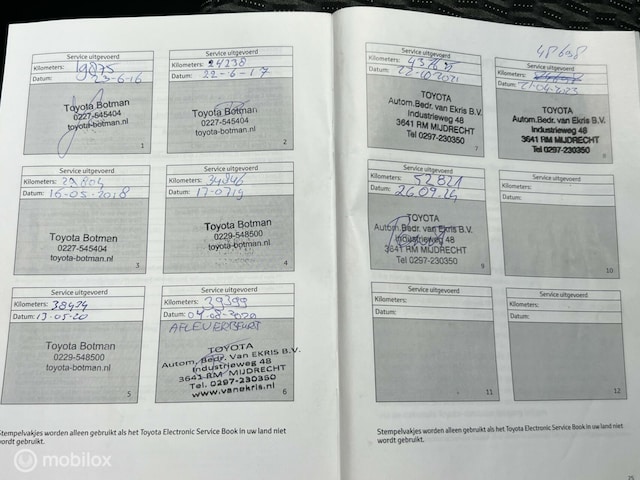 Service uitgevoerd
Kilometers: 9875
Datum: 23-6-16
Toyota Botman
0227-545404
toyota-botman.nl
1
Service uitgevoerd
Kilometers: 24238
Datum: 22-6-17
Toyota Botman
0227-545404
toyota-botman.nl
2
Service uitgevoerd
Kilometers: 29804
Datum: 16-05-2018
Toyota Botman
0227-545404
toyota-botman.nl
3
Service uitgevoerd
Kilometers: 34846
Datum: 17-0719
Toyota Botman
0229-548500
toyota-botman.nl
4
Service uitgevoerd
Kilometers: 38424
Datum: 13-05-20
Toyota Botman
0229-548500
toyota-botman.nl
5
Service uitgevoerd
Kilometers: 39399
Datum: 04-08-2020
AFLEVERBEURT
TOYOTA
Autom. Bedr. Van EKRIS B.V.
Industrieweg 48
3641 RM MIJDRECHT
Tel. 0297-230350
www.vanekris.nl
6
Stempelvakjes worden alleen gebruikt als het Toyota Electronic Service Book in uw land niet
wordt gebruikt.
Service uitgevoerd
Kilometers:
Datum: 22-10-2021
TOYOTA
Autom.Bedr. van Ekris B.V.
Industrieweg 48
3641 RM MIJDRECHT
Tel 0297-230350
7
48698
Service uitgevoerd
Kilometers:
Datum: 21-04-2023
TOYOTA
Autom.Bedr. van Ekris B.V.
Industrieweg 48
3641 RM MIJDRECHT
Tel 0297-230350
8
Service uitgevoerd
Kilometers: 52821
Datum: 26.09.24
TOYOTA
Autom.Bedr. van Ekris B.V.
Industrieweg 48
3641 RM MIJDRECHT
Tel 0297-230350
9
Service uitgevoerd
Kilometers:
Datum:
10
Service uitgevoerd
Kilometers:
Datum:
11
Service uitgevoerd
Kilometers:
Datum:
12
Stempelvakjes worden alleen gebruikt als het Toyota Electronic Service Book in uw land niet
wordt gebruikt.
mobilox